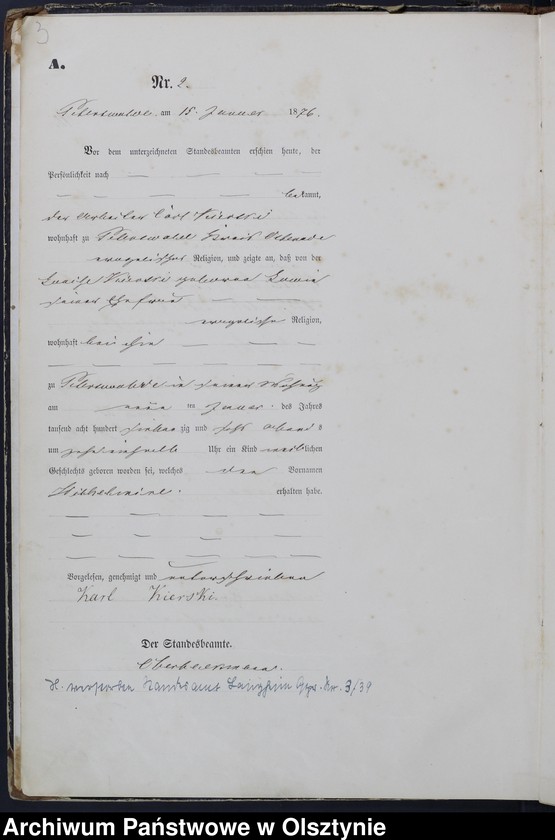 3
A.
Nr. 2.
Peterswalde am 15. Januar 1876.
Vor dem unterzeichneten Standesbeamten erschien heute, der
Persönlichkeit nach
bekannt,
der Arbeiter Carl Kierski
wohnhaft zu Peterswalde Kreis Osterode
evangelischer Religion, und zeigte an, daß von der
Louise Kierski geborene
seiner Ehefrau
evangelischer Religion,
wohnhaft bei ihm
zu Peterswalde in seiner Wohnung
am ten Januar des Jahres
tausend acht hundert siebenzig und sechs Abends
um Uhr ein Kind weiblichen
Geschlechts geboren worden sei, welches den Vornamen
Wilhelmine. erhalten habe.
Vorgelesen, genehmigt und unterschrieben
Karl Kierski.
Der Standesbeamte.
H. verstorben Standesamt Langheim Nr. 3/39
Archiwum Państwowe w Olsztynie